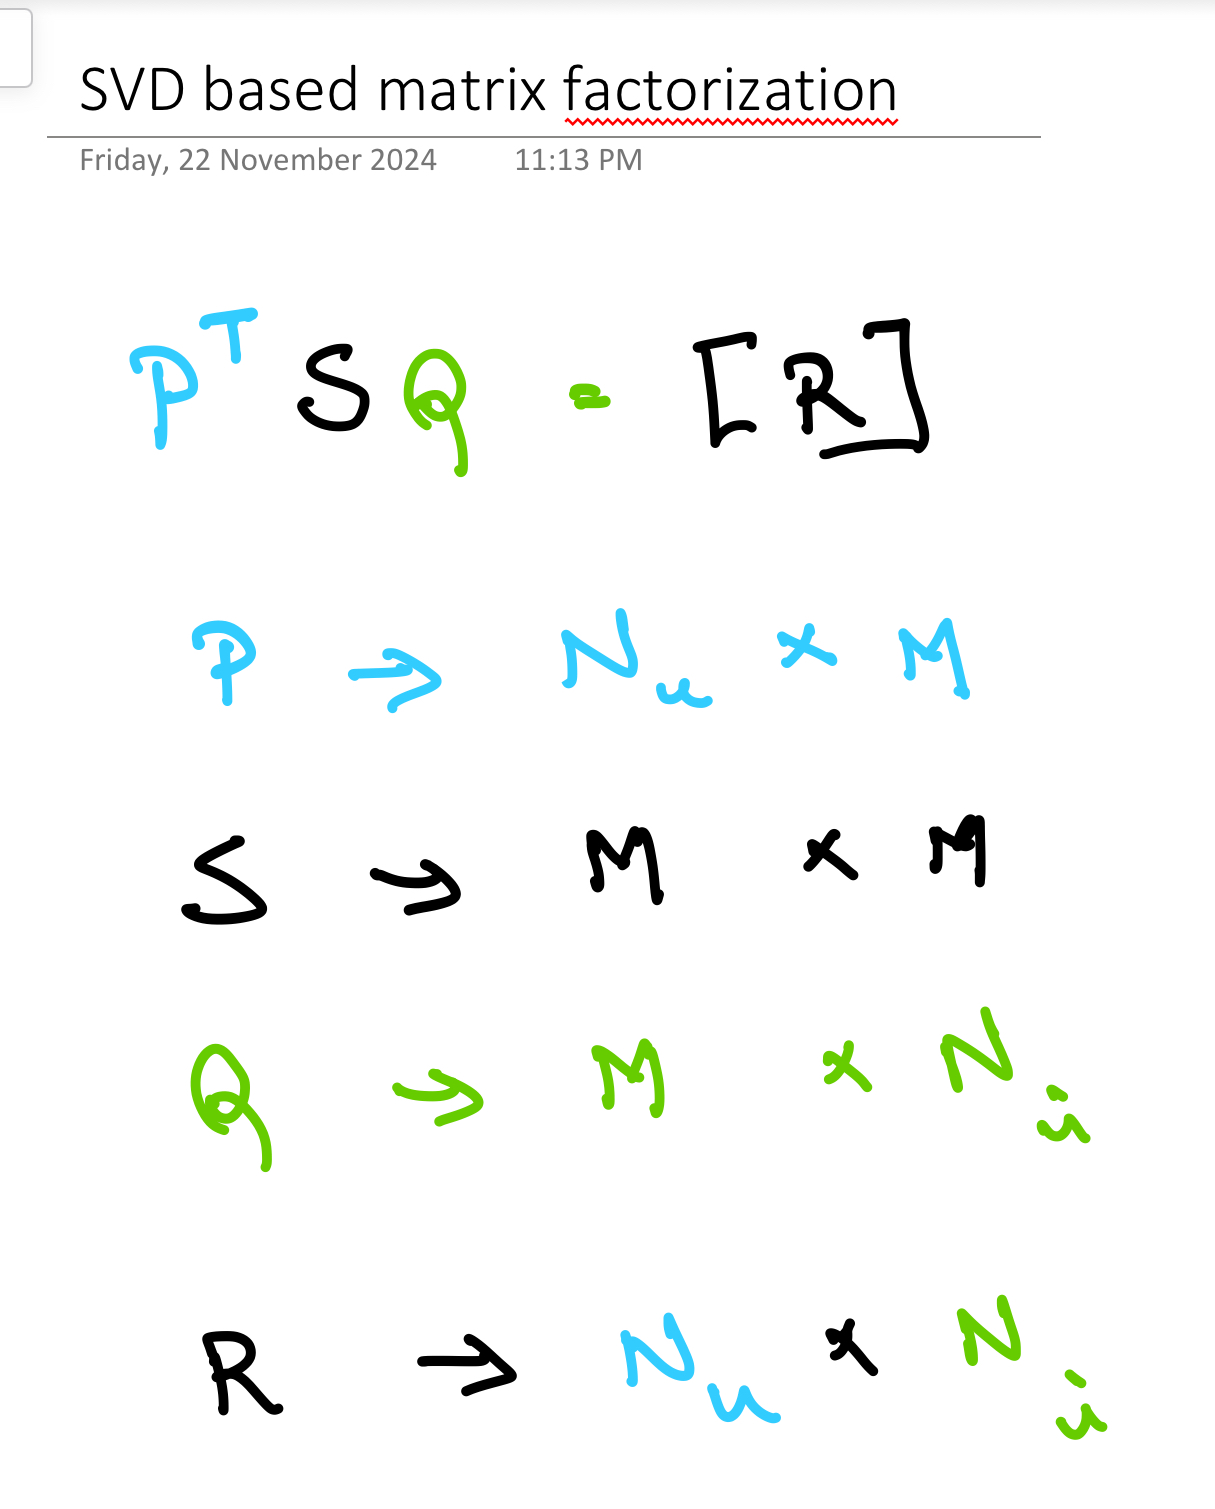 SVD based matrix factorization
Friday, 22 November 2024 11:13 PM
Pᵀ S Q = [R]
P → Nᵤ × M
S → M × M
Q → M × Nᵢ
R → Nᵤ × Nᵢ